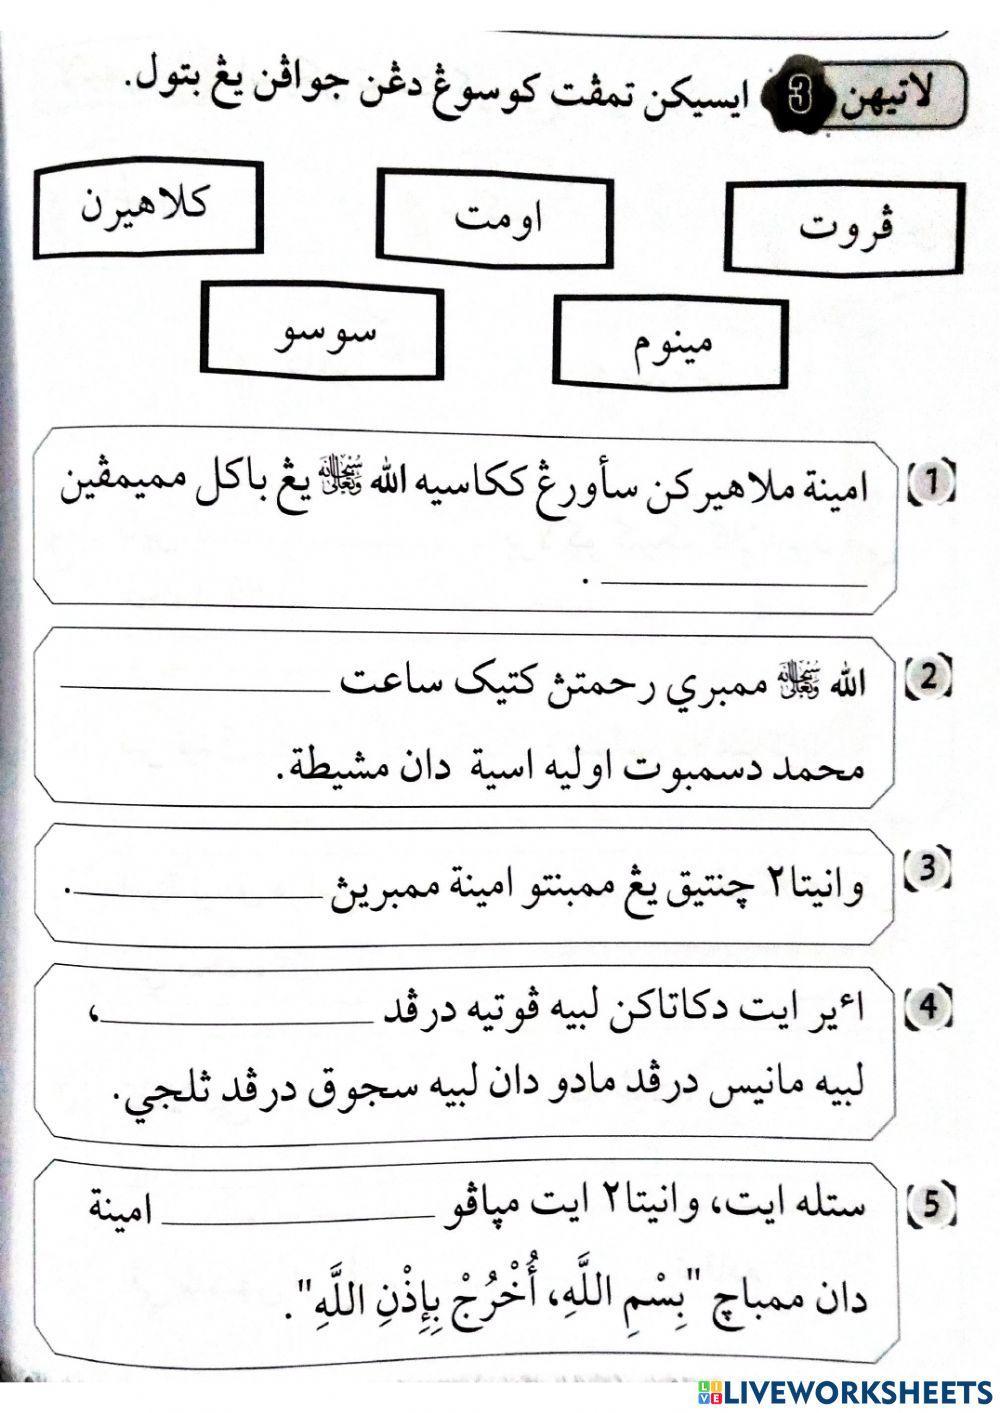 لاتيهن 3 ايسيکن تمڤت كوسوڠ دڠن جواڤن يڠ بتول.
ڤروت
اومت
كلاهيرن
مينوم
سوسو
1 امينة ملاهيركن سأورڠ ككاسيه الله ﷻ يڠ باكل مميمڤين
____________ .
2 الله ﷻ ممبري رحمتڽ كتيک ساعت ____________
محمد دسمبوت اوليه اسية دان مشيطة.
3 وانيتا٢ چنتيق يڠ ممبنتو امينة ممبريڽ ____________.
4 اءير ايت دكاتاكن لبيه ڤوتيه درڤد ____________،
لبيه مانيس درڤد مادو دان لبيه سجوق درڤد ثلجي.
5 ستله ايت، وانيتا٢ ايت مڽاڤو ____________ امينة
دان ممباچ "بِسْمِ اللَّهِ، أُخْرُجْ بِإِذْنِ اللَّهِ".
LIVEWORKSHEETS